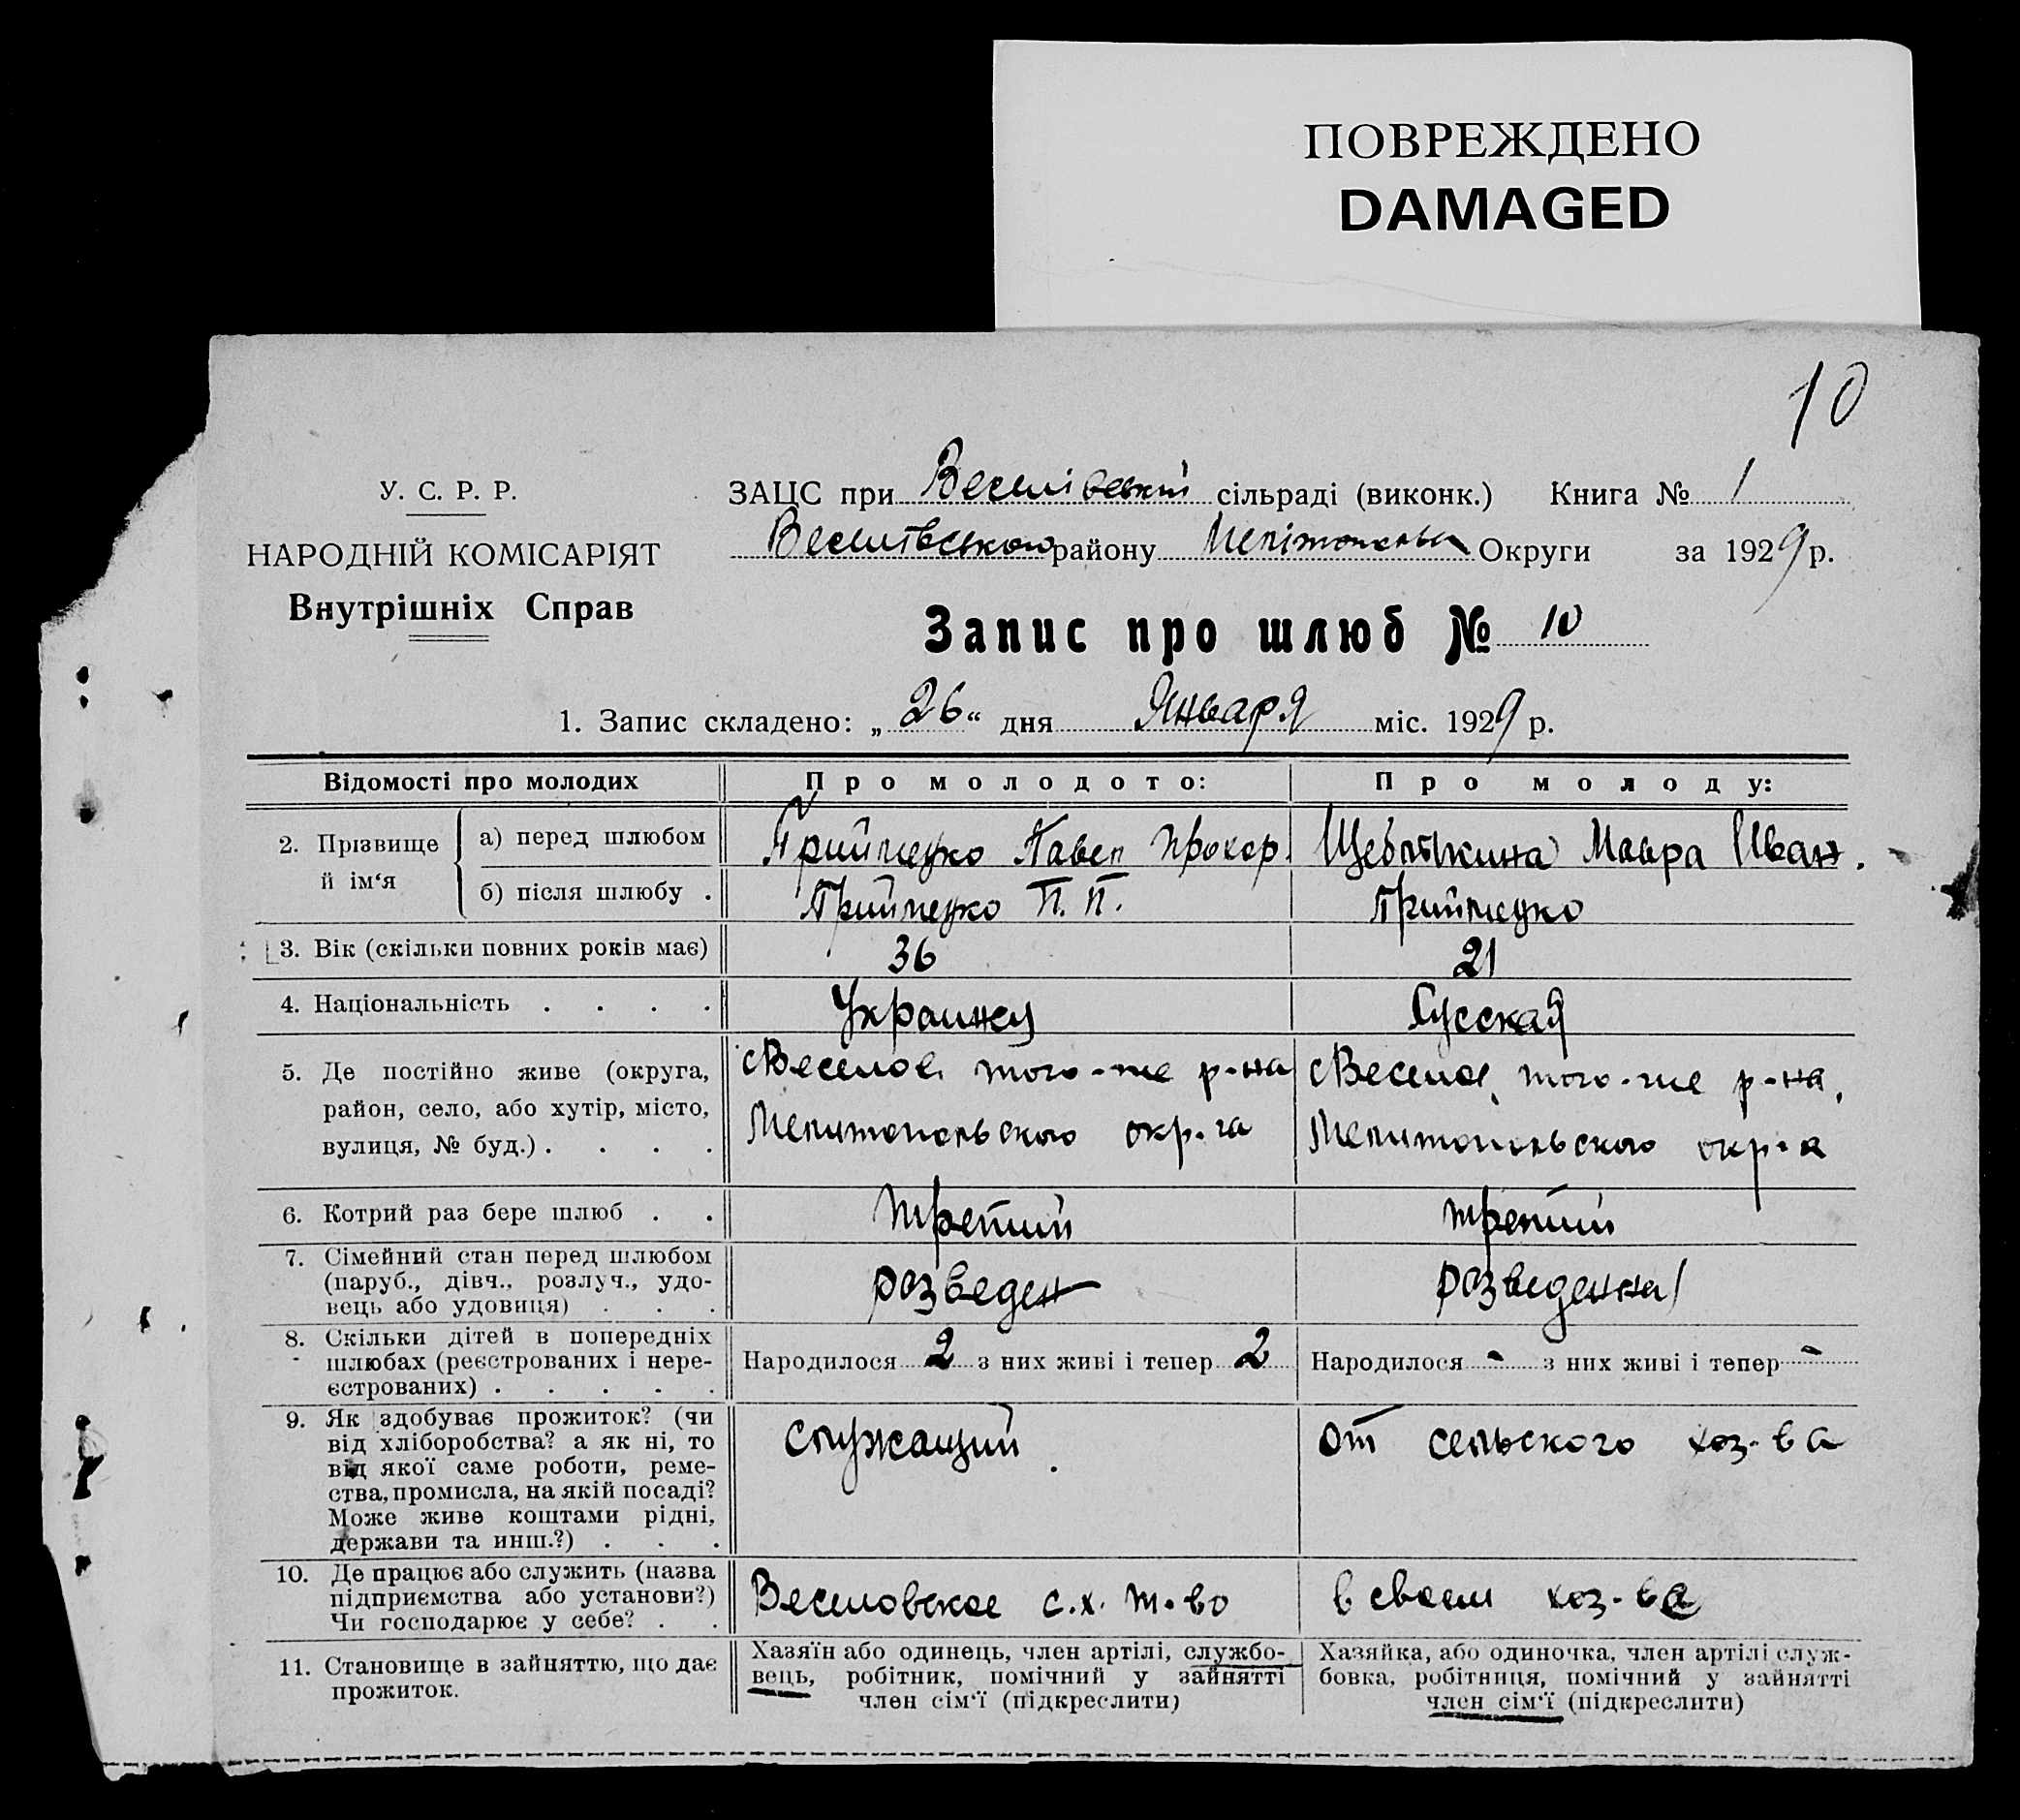 ПОВРЕЖДЕНО
DAMAGED
10
У. С. Р. Р.
НАРОДНІЙ КОМІСАРІЯТ
Внутрішніх Справ
ЗАЦС при Веселівській сільраді (виконк.) Книга № 1
Веселівського району Мелітопольск Округи за 1929 р.
Запис про шлюб № 10
1. Запис складено: „26“ дня Января міс. 1929 р.
Відомості про молодих
Про молодого:
Про молоду:
2. Прізвище й ім‘я
а) перед шлюбом
Павел Прохор.
Мавра Иван.
б) після шлюбу .
П. П.
3. Вік (скільки повних років має)
36
21
4. Національність . . . .
Украинец
Русская
5. Де постійно живе (округа,
район, село, або хутір, місто,
вулиця, № буд.) . . . .
с Веселое того-же р-на
Мелитопольского окр-га
с Веселое того-же р-на,
Мелитопольского окр-а
6. Котрий раз бере шлюб . .
третий
третий
7. Сімейний стан перед шлюбом
(паруб., дівч., розлуч., удо-
вець або удовиця) . . .
розведен
розведенна
8. Скільки дітей в попередніх
шлюбах (реєстрованих і нере-
єстрованих) . . . . .
Народилося 2 з них живі і тепер 2
Народилося - з них живі і тепер -
9. Як здобуває прожиток? (чи
від хліборобства? а як ні, то
від якої саме роботи, реме-
ства, промисла, на якій посаді?
Може живе коштами рідні,
держави та инш.?) . . .
служащий.
от сельского хоз-ва
10. Де працює або служить (назва
підприємства або установи?)
Чи господарює у себе? . .
Веселовское с.х. т-во
в своем хоз-ва
11. Становище в зайняттю, що дає
прожиток.
Хазяїн або одинець, член артілі, службо-
вець, робітник, помічний у зайнятті
член сім‘ї (підкреслити)
Хазяйка, або одиночка, член артілі служ-
бовка, робітниця, помічний у зайнятті
член сім‘ї (підкреслити)